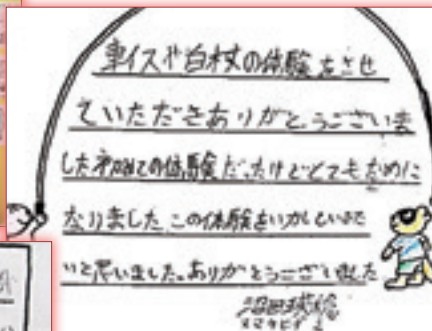 車イスや白杖の体験をさせ
ていただきありがとうございま
した初めての体験だったけどとてもために
なりました この体験をいかしていきた
いと思いました。ありがとうございました
沼田